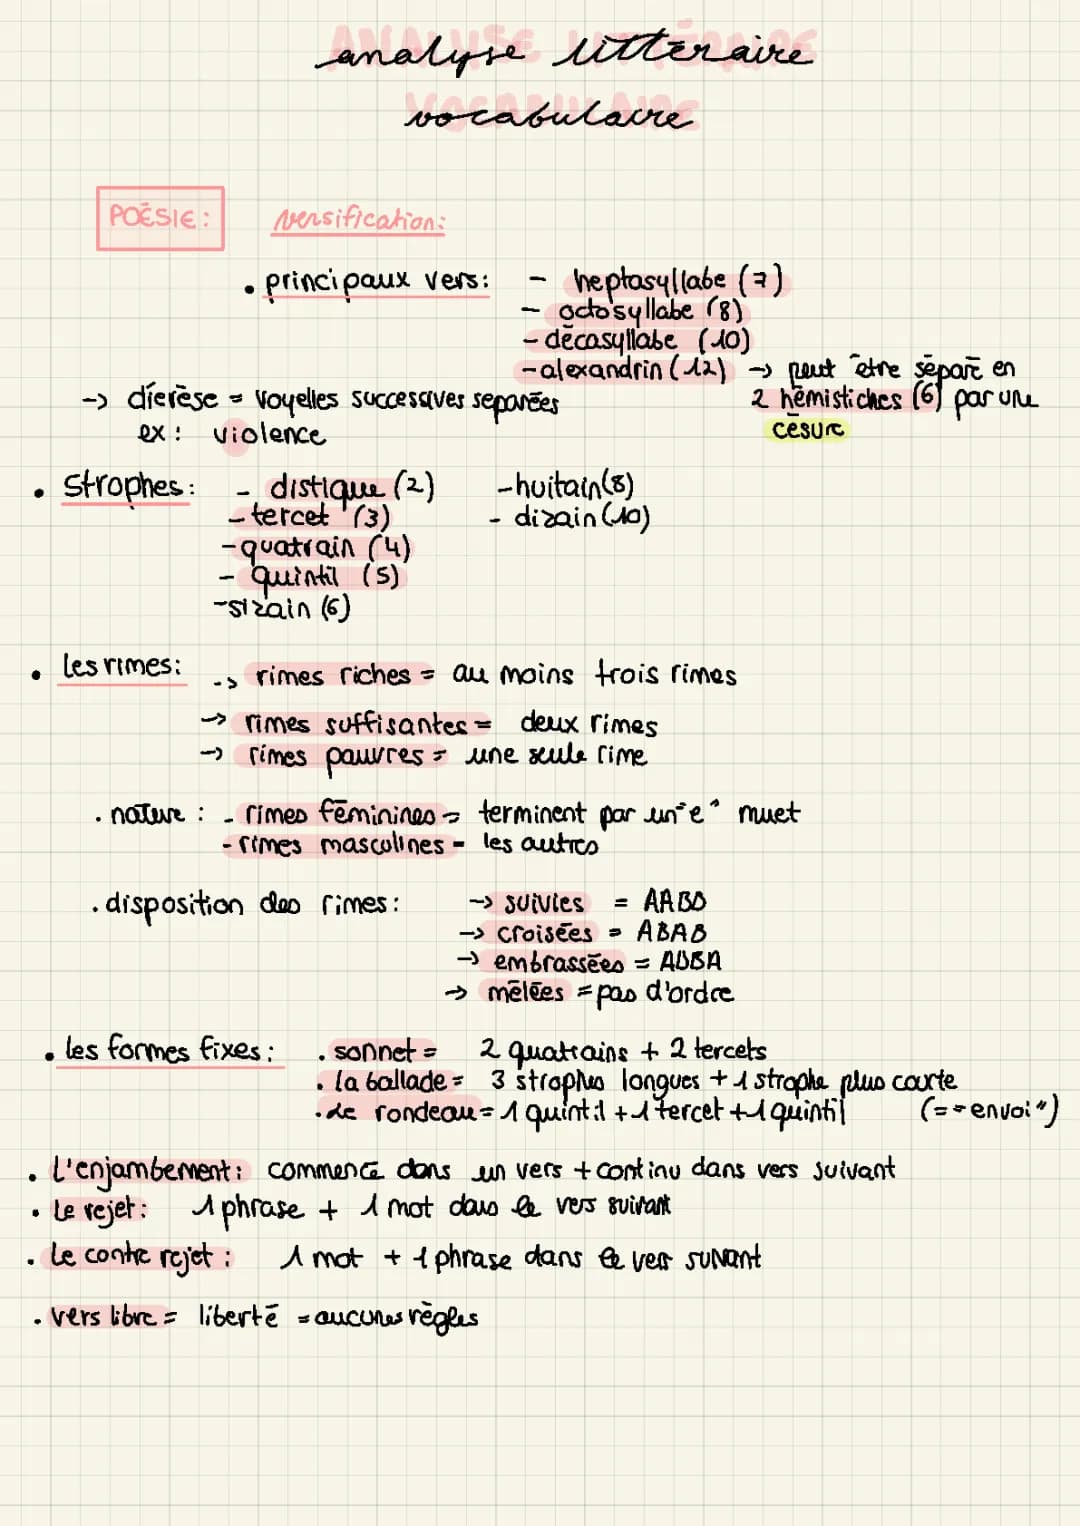 analyse littéraire
vocabulaire
POÉSIE : versification:
• principaux vers: - heptasyllabe (7)
- octosyllabe (8)
- décasyllabe (10)
- alexandrin (12) → peut être séparé en
2 hémistiches (6) par une
césure
-> diérèse = voyelles successives séparées
ex : violence
• Strophes: - distique (2) - huitain (8)
- tercet (3) - dizain (10)
- quatrain (4)
- quintil (5)
- sizain (6)
• Les rimes: -> rimes riches = au moins trois rimes
→ rimes suffisantes = deux rimes
→ rimes pauvres = une seule rime
. nature : - rimes féminines = terminent par un "e" muet
- rimes masculines = les autres
. disposition des rimes: → suivies = AABB
→ croisées = ABAB
→ embrassées = ABBA
→ mêlées = pas d'ordre
• Les formes fixes: . sonnet = 2 quatrains + 2 tercets
. la ballade = 3 strophes longues + 1 strophe plus courte
. le rondeau = 1 quintil + 1 tercet + 1 quintil (= "envoi")
. L'enjambement: commence dans un vers + continu dans vers suivant
. Le rejet: 1 phrase + 1 mot dans le vers suivant
. Le contre rejet: 1 mot + 1 phrase dans le vers suivant
. vers libre = liberté = aucunes règles